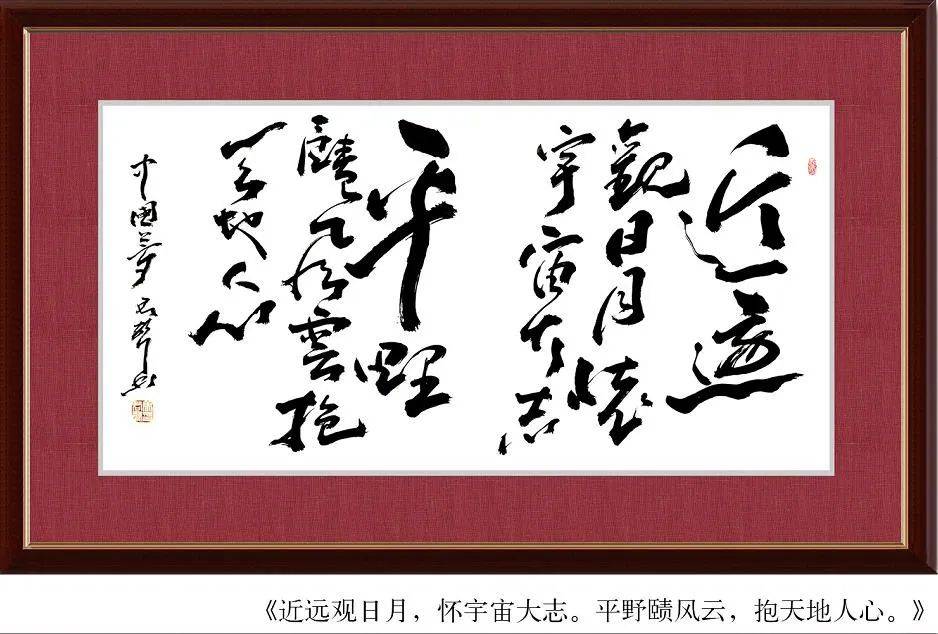 近遠
觀日月懷
宇宙大志
平野
賾風雲抱
天地人心
中國夢
《近远观日月，怀宇宙大志。平野赜风云，抱天地人心。》